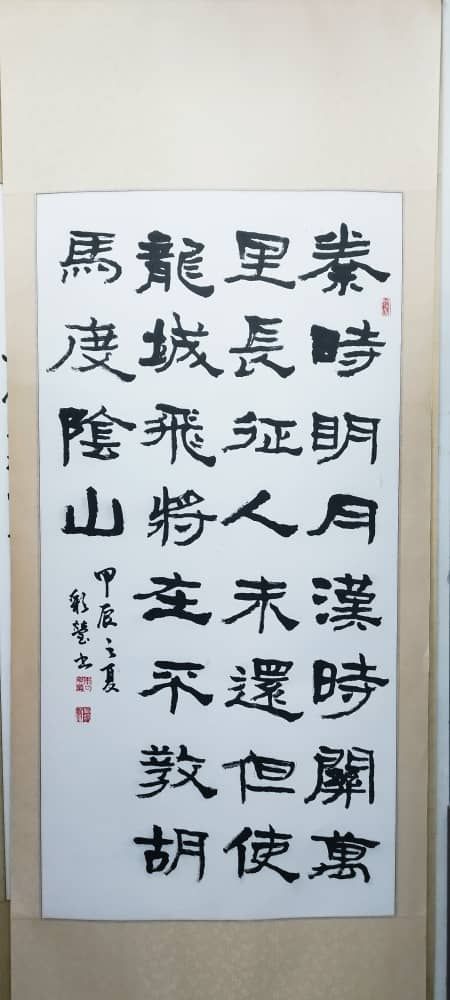 秦時明月漢時關萬
里長征人未還但使
龍城飛將在不敎胡
馬度陰山
甲辰之夏
彩瑩书